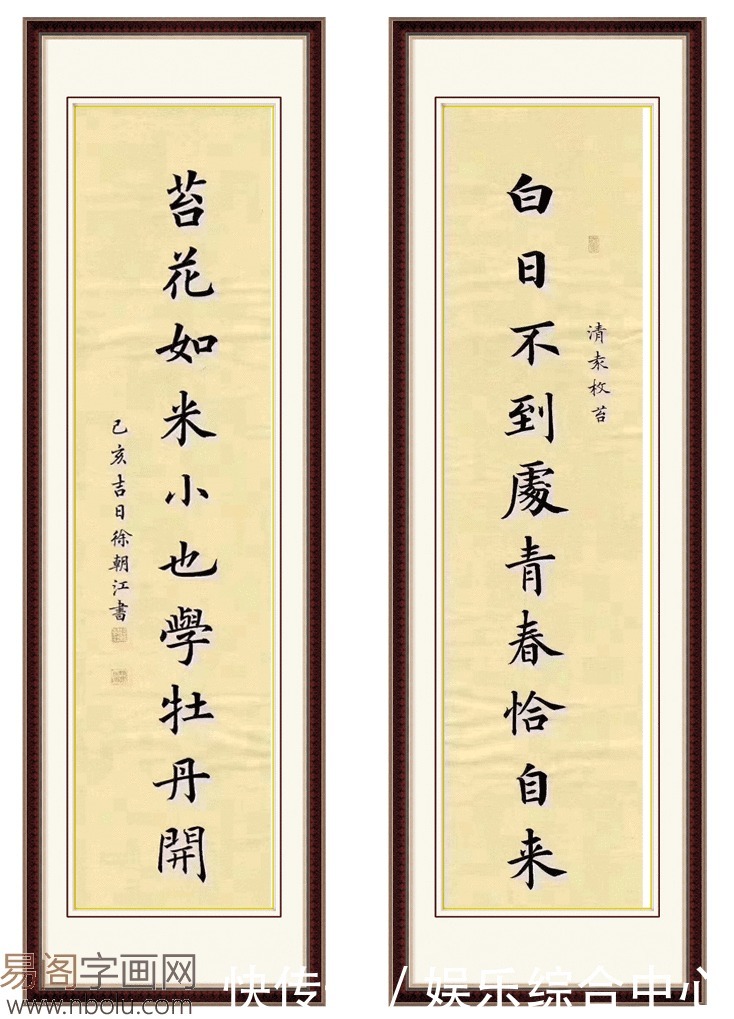 白日不到處青春恰自来
清袁枚苔
苔花如米小也學牡丹開
己亥吉日徐朝江書
易阁字画网
www.nbolu.com
快传
/ 娱乐综合中心